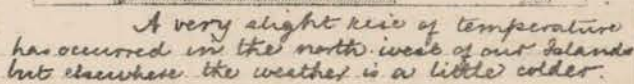 A very slight rise of temperature
has occurred in the north west of our Islands
but elsewhere the weather is a little colder.